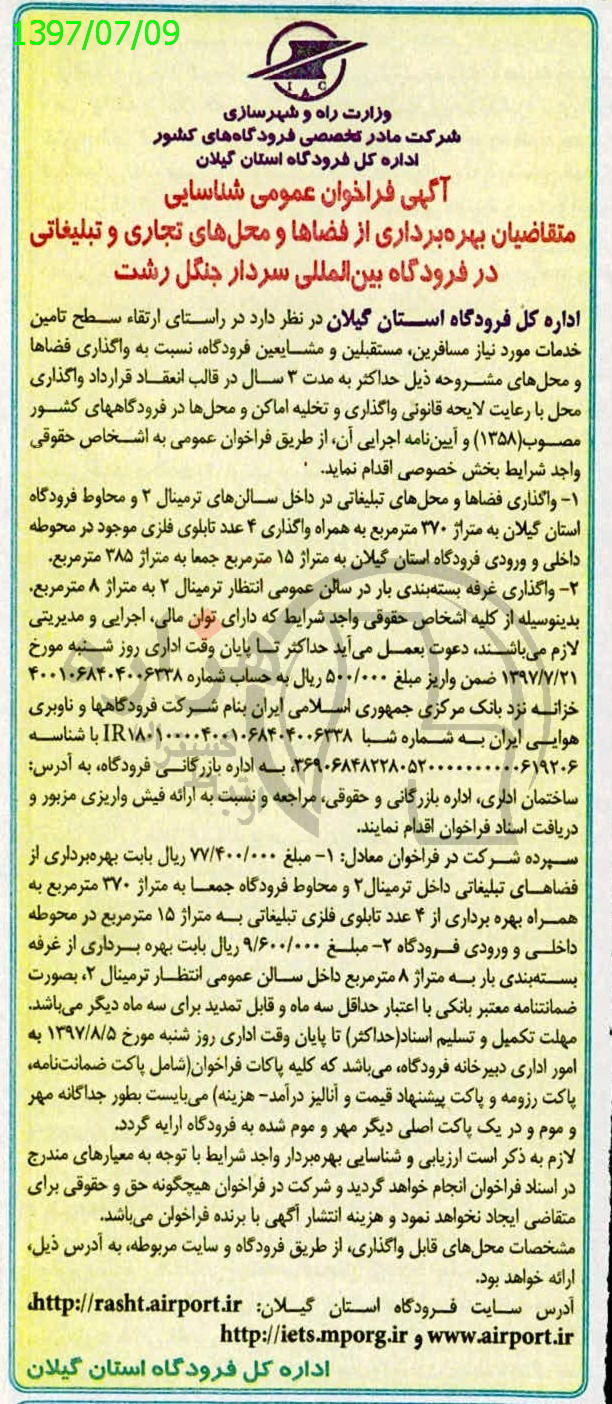 1397/07/09
I A C
وزارت راه و شهرسازی
شرکت مادر تخصصی فرودگاه‌های کشور
اداره کل فرودگاه استان گیلان
آگهی فراخوان عمومی شناسایی
متقاضیان بهره‌برداری از فضاها و محل‌های تجاری و تبلیغاتی
در فرودگاه بین‌المللی سردار جنگل رشت
اداره کل فرودگاه استان گیلان در نظر دارد در راستای ارتقاء سطح تامین
خدمات مورد نیاز مسافرین، مستقبلین و مشایعین فرودگاه، نسبت به واگذاری فضاها
و محل‌های مشروحه ذیل حداکثر به مدت ۳ سال در قالب انعقاد قرارداد واگذاری
محل با رعایت لایحه قانونی واگذاری و تخلیه اماکن و محل‌ها در فرودگاههای کشور
مصوب(۱۳۵۸) و آیین‌نامه اجرایی آن، از طریق فراخوان عمومی به اشخاص حقوقی
واجد شرایط بخش خصوصی اقدام نماید.
۱- واگذاری فضاها و محل‌های تبلیغاتی در داخل سالن‌های ترمینال ۲ و محاوط فرودگاه
استان گیلان به متراژ ۳۷۰ مترمربع به همراه واگذاری ۴ عدد تابلوی فلزی موجود در محوطه
داخلی و ورودی فرودگاه استان گیلان به متراژ ۱۵ مترمربع جمعا به متراژ ۳۸۵ مترمربع.
۲- واگذاری غرفه بسته‌بندی بار در سالن عمومی انتظار ترمینال ۲ به متراژ ۸ مترمربع.
بدینوسیله از کلیه اشخاص حقوقی واجد شرایط که دارای توان مالی، اجرایی و مدیریتی
لازم می‌باشند، دعوت بعمل می‌آید حداکثر تا پایان وقت اداری روز شنبه مورخ
۱۳۹۷/۷/۲۱ ضمن واریز مبلغ ۵۰۰/۰۰۰ ریال به حساب شماره ۴۰۰۱۰۶۸۴۰۴۰۰۶۳۳۸
خزانه نزد بانک مرکزی جمهوری اسلامی ایران بنام شرکت فرودگاهها و ناوبری
هوایی ایران به شماره شبا IR۱۸۰۱۰۰۰۰۴۰۰۱۰۶۸۴۰۴۰۰۶۳۳۸ با شناسه
۳۶۹۰۶۸۴۸۲۲۸۰۵۲۰۰۰۰۰۰۰۰۰۰۰۶۱۹۲۰۶، به اداره بازرگانی فرودگاه، به آدرس:
ساختمان اداری، اداره بازرگانی و حقوقی، مراجعه و نسبت به ارائه فیش واریزی مزبور و
دریافت اسناد فراخوان اقدام نمایند.
سپرده شرکت در فراخوان معادل: ۱- مبلغ ۷۷/۴۰۰/۰۰۰ ریال بابت بهره‌برداری از
فضاهای تبلیغاتی داخل ترمینال۲ و محاوط فرودگاه جمعا به متراژ ۳۷۰ مترمربع به
همراه بهره برداری از ۴ عدد تابلوی فلزی تبلیغاتی به متراژ ۱۵ مترمربع در محوطه
داخلی و ورودی فرودگاه ۲- مبلغ ۹/۶۰۰/۰۰۰ ریال بابت بهره برداری از غرفه
بسته‌بندی بار به متراژ ۸ مترمربع داخل سالن عمومی انتظار ترمینال ۲، بصورت
ضمانتنامه معتبر بانکی با اعتبار حداقل سه ماه و قابل تمدید برای سه ماه دیگر می‌باشد.
مهلت تکمیل و تسلیم اسناد(حداکثر) تا پایان وقت اداری روز شنبه مورخ ۱۳۹۷/۸/۵ به
امور اداری دبیرخانه فرودگاه، می‌باشد که کلیه پاکات فراخوان(شامل پاکت ضمانت‌نامه،
پاکت رزومه و پاکت پیشنهاد قیمت و آنالیز درآمد- هزینه) می‌بایست بطور جداگانه مهر
و موم و در یک پاکت اصلی دیگر مهر و موم شده به فرودگاه ارایه گردد.
لازم به ذکر است ارزیابی و شناسایی بهره‌بردار واجد شرایط با توجه به معیارهای مندرج
در اسناد فراخوان انجام خواهد گردید و شرکت در فراخوان هیچگونه حق و حقوقی برای
متقاضی ایجاد نخواهد نمود و هزینه انتشار آگهی با برنده فراخوان می‌باشد.
مشخصات محل‌های قابل واگذاری، از طریق فرودگاه و سایت مربوطه، به آدرس ذیل،
ارائه خواهد بود.
آدرس سایت فرودگاه استان گیلان: http://rasht.airport.ir،
www.airport.ir و http://iets.mporg.ir
اداره کل فرودگاه استان گیلان